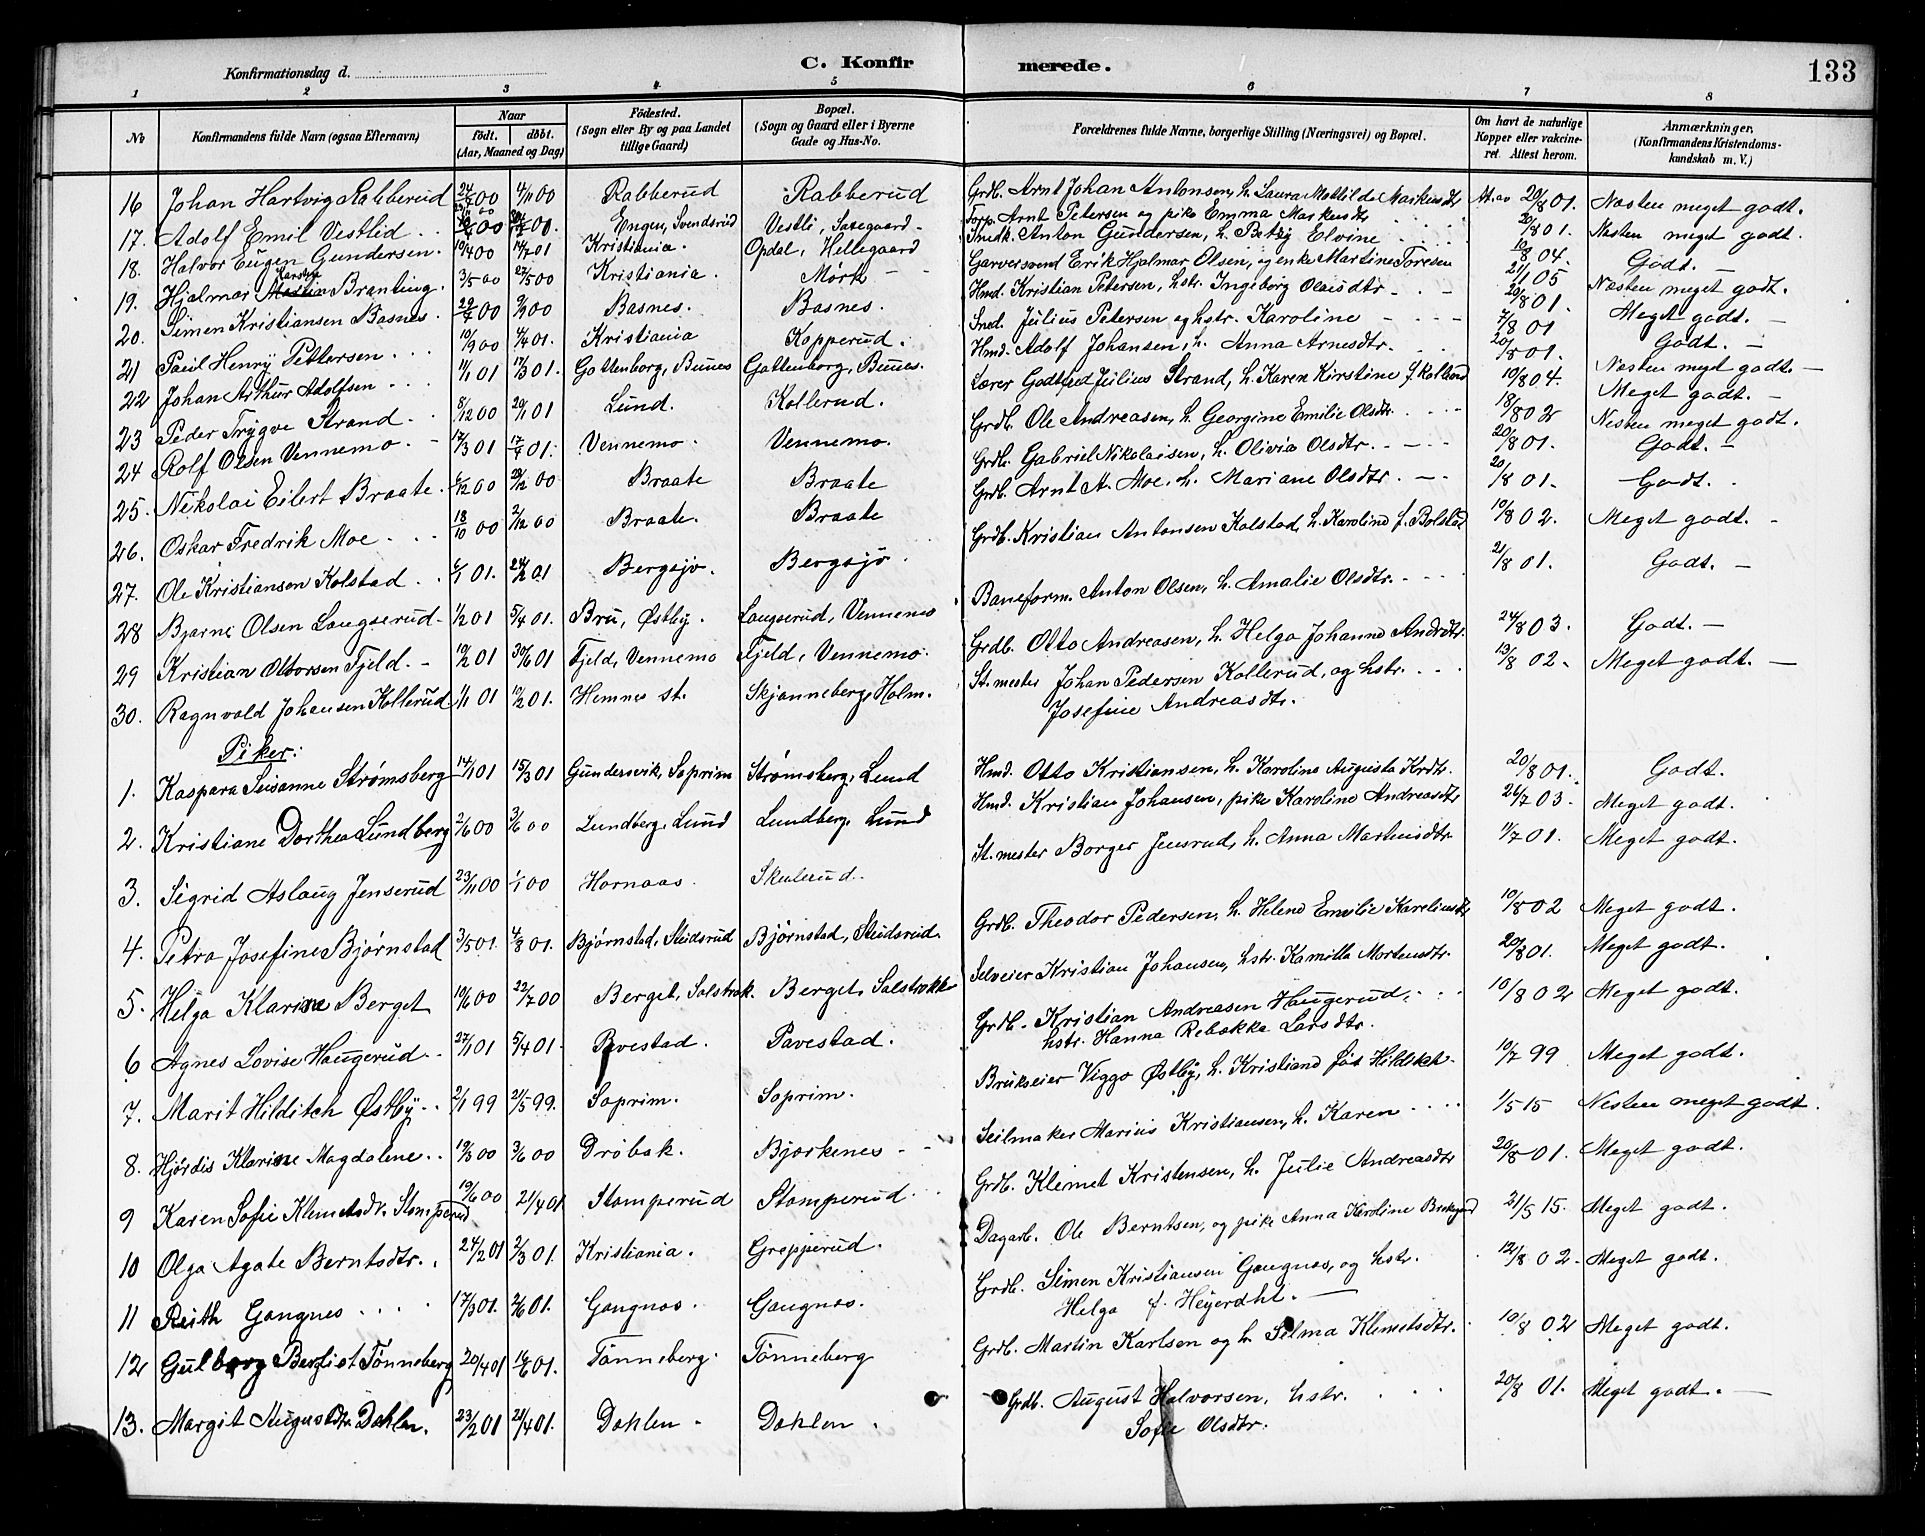 Konfirmationsdag d.
C. Konfirmerede.
133
1 2 3 4 5 6 7 8
№ Konfirmandens fulde Navn (ogsaa Efternavn) Naar födt. döbt. (Aar, Maaned og Dag) Födested. (Sogn eller By og paa Landet tillige Gaard) Bopæl. (Sogn og Gaard eller i Byerne Gade og Hus-No. Forældrenes fulde Navne, borgerlige Stilling (Næringsvei) og Bopæl. Om havt de naturlige Kopper eller vakcineret. Attest herom. Anmærkninger. (Konfirmandens Kristendomskundskab m. V.)
16 Johan Hartvig Rabberud 24/7 00 4/11 00 Rabberud Rabberud Grdb. Arnt Johan Antonsen, h. Laura Mathilde Markusdtr At. av 20/8 01. Næsten meget godt.
17. Adolf Emil Vestlid Engen, Svendsrud Vestli, Sagegaard Arnt Petersen og pike Emma Markusdtr 20/8 01. Næsten meget godt.
18. Halvor Eugen Gundersen. 10/4 00 14/7 01 Kristiania. Opdal, Hellegaard Smedk. Anton Gundersen, h. Betzy Elvine 10/8 04. Godt. —
19. Hjalmar Karsten Branting. 3/5 00 27/5 00 Kristiania. Mörk Garversvend Erik Hjalmar Olsen, og enke Martine Toresen 21/1 05 Næsten meget godt.
20. Simen Kristiansen Basnes. 29/7 00 9/9 00 Basnes. Basnes. Hmd. Kristian Petersen, hstr. Ingeborg Olausdtr 20/8 01. Meget godt. —
21 Paul Henry Pettersen 10/9 00 4/4 01. Kristiania Kopperud. Smed. Julius Petersen og hstr. Karoline 7/8 01 Godt. —
22 Johan Arthur Adolfsen 11/1 01 17/3 01. Gottenborg, Bunes Gottenborg, Bunes. Hmd. Adolf Johansen, h. Anna Arnesdtr. 20/8 01. Næsten meget godt. —
23 Peder Trygve Strand 8/12 00 20/1 01 Lund. Kollerud. Lærer Godtfred Julius Strand, h. Karen Kirstine f. Kollerud 10/8 04. Meget godt. —
24 Rolf Olsen Vennemo. 17/3 01 17/4 01. Vennemo. Vennemo. Grdb. Ole Andreasen, h. Georgine Emilie Olsdtr 18/8 02 Nesten meget godt.
25. Nikolai Eilert Braate. 6/12 00 28/12 00 Braate Braate Grdb. Gabriel Nikolaisen, h. Olivia Olsdtr. 20/8 01. Godt. —
26. Oskar Fredrik Moe 18/10 00 2/12 00 Braate. Braate Grdb. Arnt A. Moe, h. Mariane Olsdtr. 20/8 01. Godt.
27. Ole Kristiansen Kolstad 6/1 01. 24/2 01 Bergsjø. Bergsjø Grdb. Kristian Antonsen Kolstad, h. Karoline f. Bolstad 10/8 02. Meget godt.
28 Bjarne Olsen Langserud 1/2 01 5/4 01. Bru, Østby. Langserud, Vennemo Baneform. Anton Olsen, h. Amalie Olsdtr. 21/8 01. Godt. —
29 Kristian Ottorsen Fjeld. 10/2 01 30/6 01 Fjeld, Vennemo Fjeld, Vennemo. Grdb. Otto Andreasen, h. Helga Johanne Andrdtr. 24/8 03. Godt. —
30. Ragnvald Johansen Kollerud 1/1 01 10/2 01. Hemnes st. Skjønneberg, Holm. St.mester Johan Pedersen Kollerud, og hstr. Josefine Andreasdtr. 13/8 02 Meget godt. —
Piker:
1. Kaspara Susanne Strømsberg 14/1 01 15/3 01 Gundersvik, Soprim Strømsberg, Lund Hmd. Otto Kristiansen, h. Karoline Augusta Krdtr. 20/8 01. Godt.
2. Kristiane Dorthea Lundberg 2/6 00 3/6 00 Lundberg, Lund Lundberg, Lund Hmd. Kristian Johansen, pike Karoline Andreasdtr 26/7 03. Meget godt.
3. Sigrid Aslaug Jenserud 23/11 00 1/1 00 Hornaas Skulerud. St.mester Borger Jensrud, h. Anna Martinsdtr. 11/7 01. Meget godt.
4. Petra Josefine Bjørnstad 3/5 01. 4/8 01. Bjørnstad, Studsrud Bjørnstad, Studsrud. Grdb. Theodor Pedersen, h. Helene Emilie Kareliusdtr 10/8 02 Meget godt.
5. Helga Klarine Berget 10/6 00 22/7 00 Berget, Solstrøk. Berget, Solstrøkke Selveier Kristian Johansen, hstr. Kamilla Mortensdtr. 20/8 01. Meget godt.
6 Agnes Lovise Haugerud 27/1 01 5/4 01. Pavestad. Pavestad. Grdb. Kristian Andreasen Haugerud, hstr. Hanna Rebekka Larsdtr. 10/8 02 Meget godt.
7. Marit Hilditch Østby 2/1 99 21/5 99. Soprim. Soprim. Brukseier Viggo Østby, h. Kristiane født Hilditch 10/7 99 Meget godt.
8. Hjördis Klarine Magdalene 19/3 00 3/6 00 Dröbak. Bjørkenes Seilmaker Marius Kristiansen, h. Karen 1/5 15 Nesten meget godt.
9 Karen Sofie Klemetsdtr. Stomperud 19/6 00 21/4 01 Stomperud Stomperud Grdb. Klemet Kristensen, h. Julie Andreasdtr 20/8 01. Meget godt.
10 Olga Agate Berntsdtr. 24/2 01 2/3 01. Kristiania. Gropperud. Dagarb. Ole Berntsen, og pike Anna Karoline 21/5 15. Meget godt.
11 Ruth Gangnes 17/3 01. 2/6 01. Gangnes. Gangnes. Grdb. Simen Kristiansen Gangnes, og hstr. Helga f. Heyerdhl. — 12/8 02. Meget godt.
12 Gulborg Bergiot Tönneberg 20/4 01 16/6 01. Tönneberg. Tönneberg Grdb. Martin Karlsen og h. Selma Klemetsdtr. 10/8 02 Meget godt.
13. Margit Augusta Dahlen. 23/2 01 21/4 01. Dahlen Dahlen Grdb. August Halvorsen, hstr. Sofie Olsdtr. 20/8 01. Meget godt. —